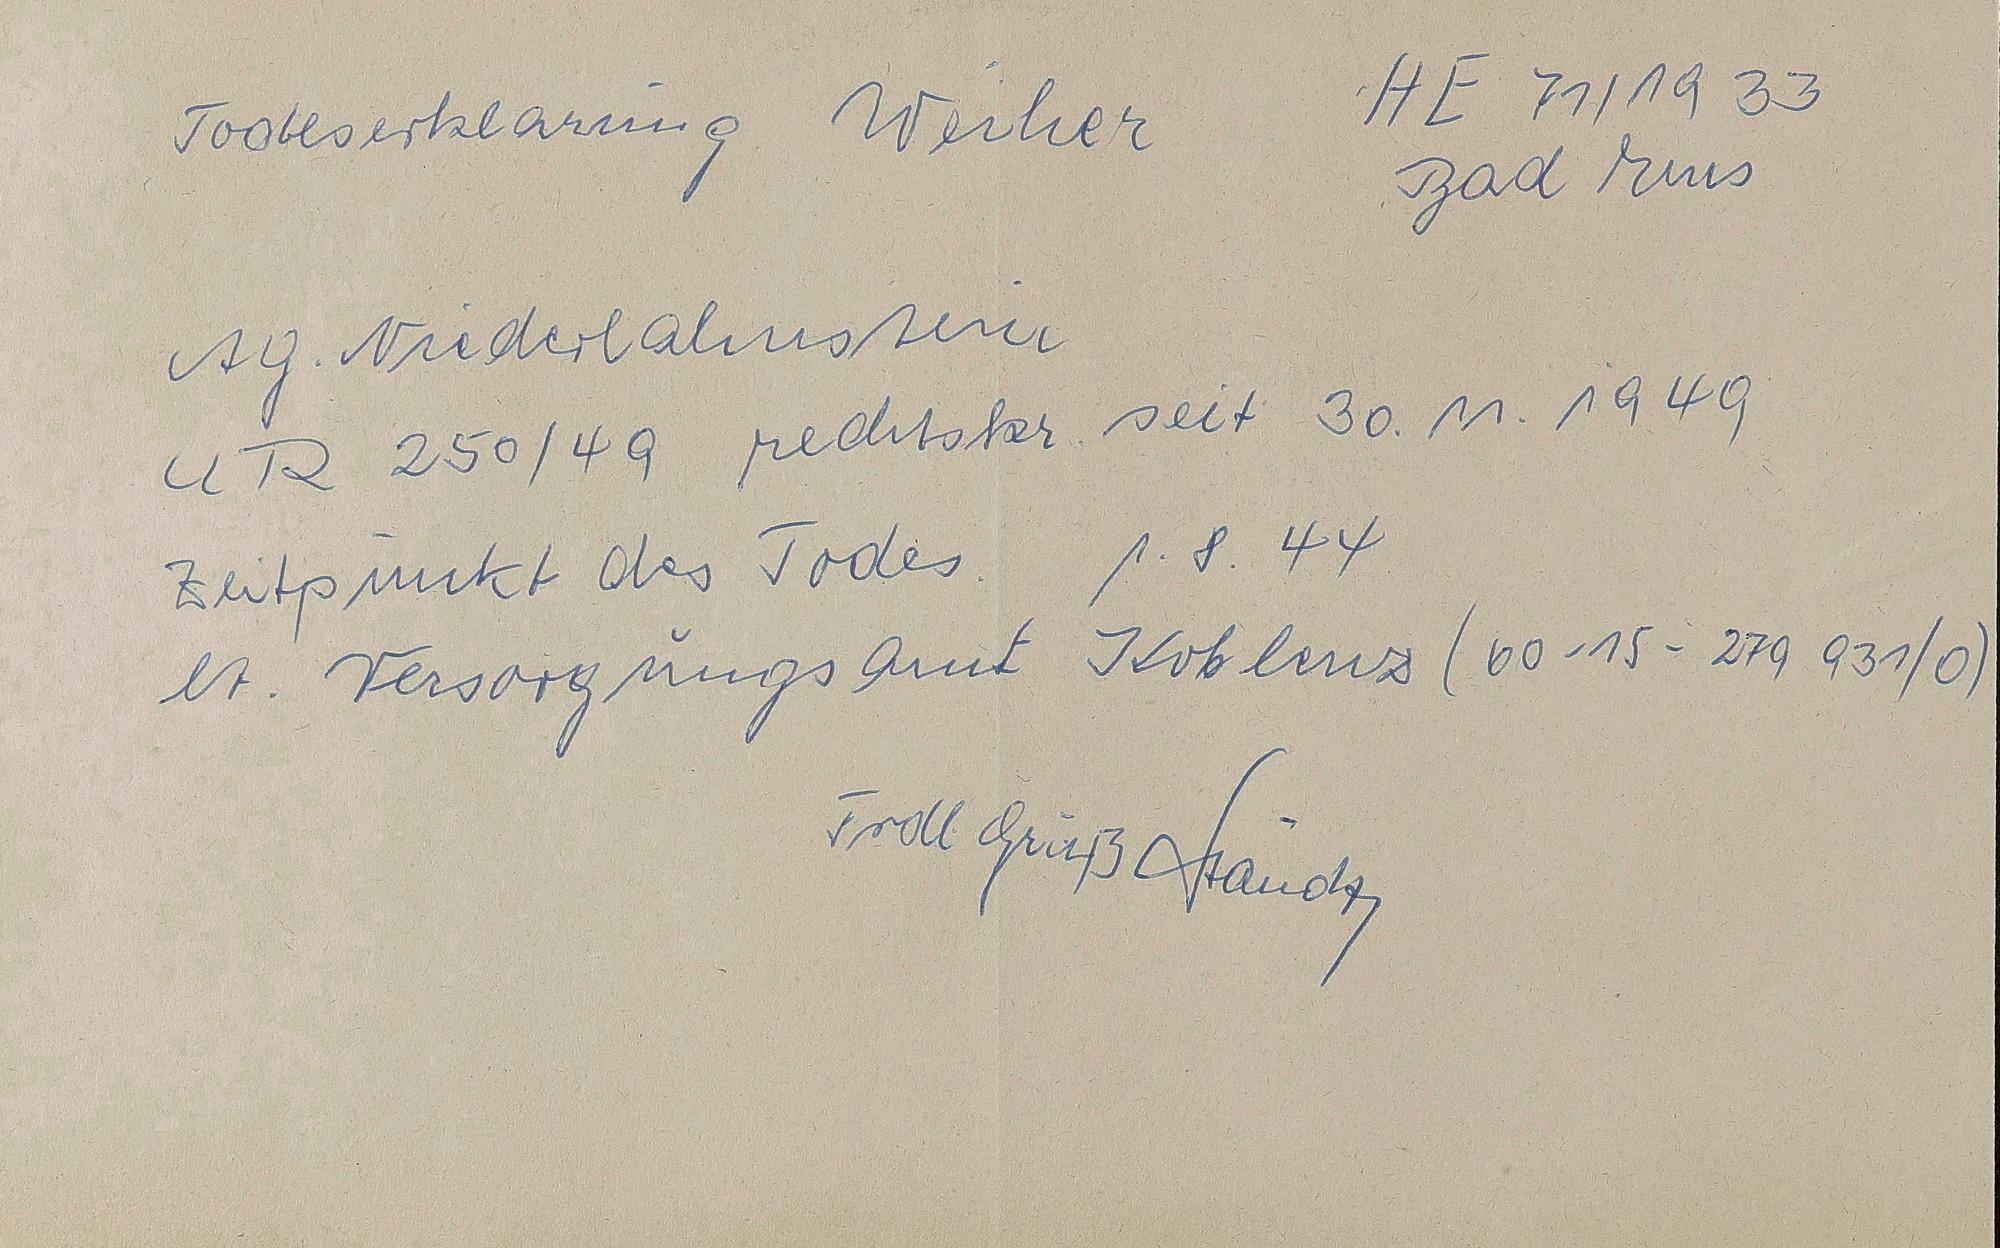 Todeserklärung Weiher HE 71/1933
Bad Ems
AG. Niederlahnstein
UR 250/49 rechtskr. seit 30. 11. 1949
Zeitpunkt des Todes. 1. 8. 44
lt. Versorgungsamt Koblenz (60-15-279 931/0)
Frdl Gruß